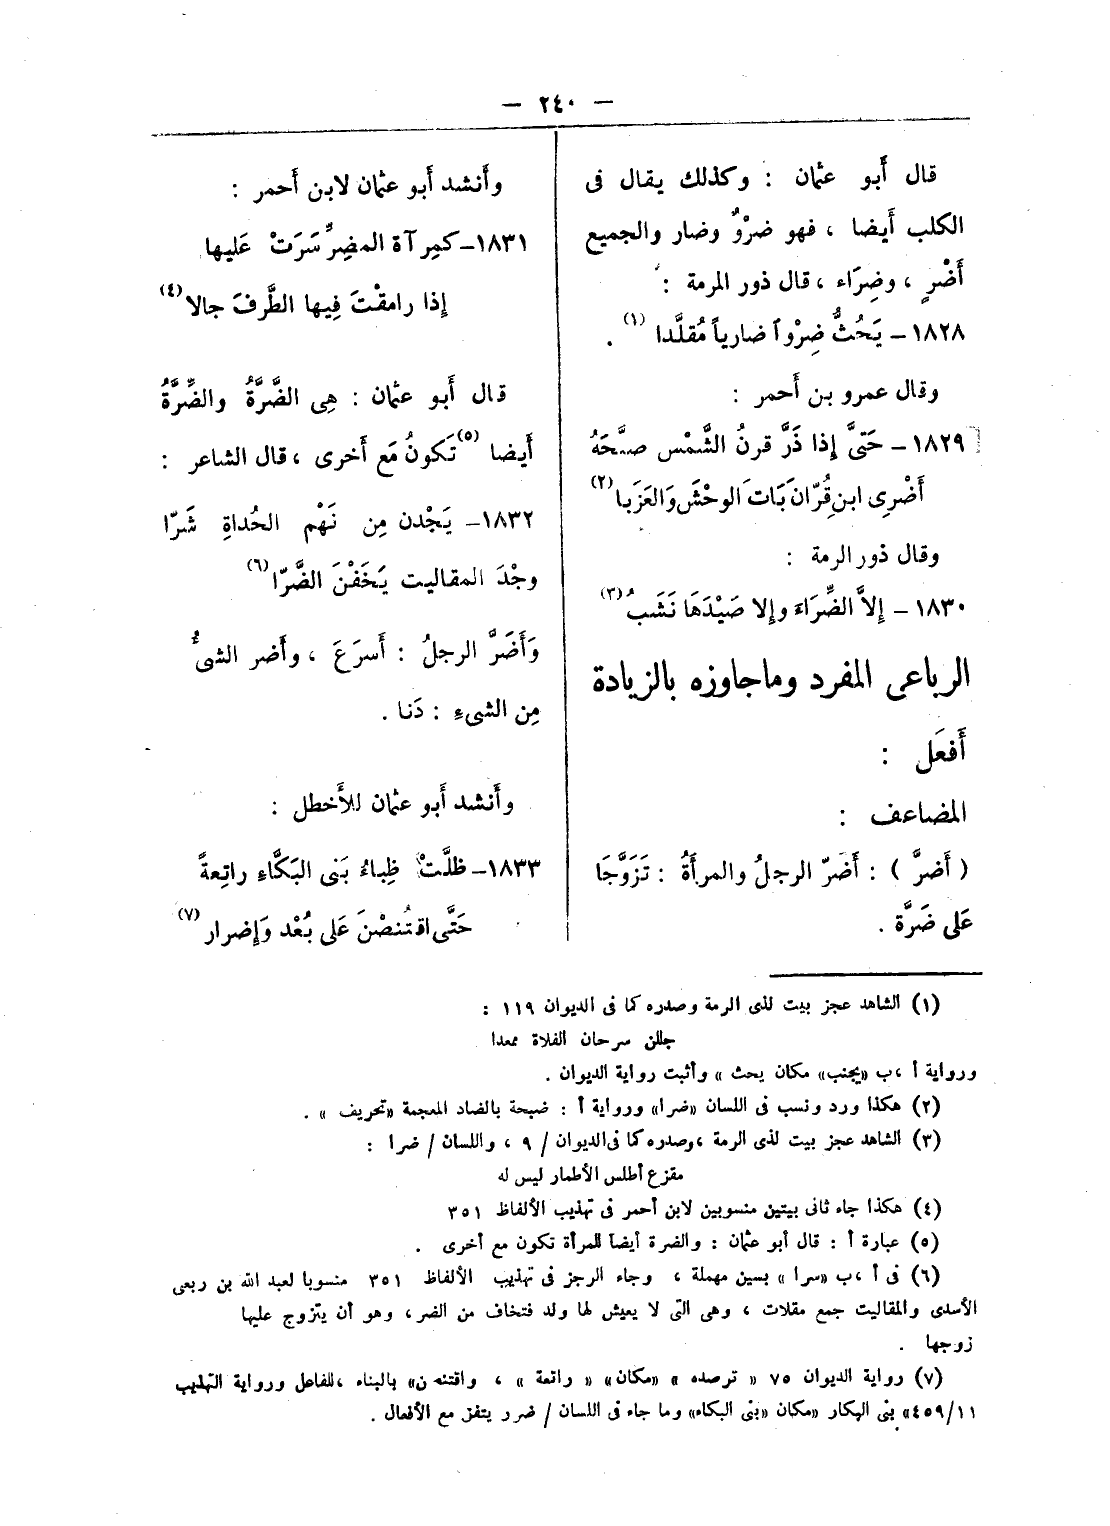 — ٢٤٠ —
قال أَبو عثمان : وكذلك يقال فى
الكلب أَيضا ، فهو ضرْوٌ وضار والجميع
أَضْرٍ ، وضِرَاء ، قال ذور المرمة :
١٨٢٨ – يَحُثُّ ضِرْواً ضارياً مُقلَّدا (١) .
وقال عمرو بن أَحمر :
١٨٢٩ – حَتىَّ إِذا ذَرَّ قرنُ الشَّمْس صبَّحَهُ
أَضْرِى ابنِ قُرّانَ بَات الوحْشَ وَالعَزَبا (٢)
وقال ذور الرمة :
١٨٣٠ – إِلاَّ الضِّرَاءَ وإِلا صَيْدَهَا نَشَبُ (٣)
الرباعى المفرد وماجاوزه بالزيادة
أَفعَل :
المضاعف :
( أَضرَّ ) : أَضَرّ الرجلُ والمرأَةُ : تَزَوَّجَا
عَلى ضَرَّة .
وأَنشد أَبو عثمان لابن أَحمر :
١٨٣١– كمِرآة المضِرِّ سَرَتْ عَليها
إِذا رامقْتَ فِيها الطَّرفَ جالا (٤)
قال أَبو عثمان : هِى الضَّرَّةُ والضِّرَّةُ
أَيضا (٥) تَكونُ مَع أَخرى ، قال الشاعر :
١٨٣٢– يَجْدن مِن نَهْم الحُداةِ شَرّا
وجْدَ المقاليت يَخَفْنَ الضَّرّا (٦)
وَأَضَرَّ الرجلُ : أَسرَعَ ، وأَضر الشىءُ
مِن الشىءِ : دَنا .
وأَنشد أَبو عثمان للأَخطل :
١٨٣٣– ظلَّتْ ظِباءُ بَنى البَكَّاءِ راتِعةً
حَتَّى اقتُنصْنَ عَلى بُعْد وَإِضرار (٧)
(١) الشاهد عجز بيت لذى الرمة وصدره كما فى الديوان ١١٩ :
جللن سرحان الفلاة ممعدا
ورواية أ ،ب «يجنب» مكان يحث » وأثبت رواية الديوان .
(٢) هكذا ورد ونسب فى اللسان «ضرا» ورواية أ : ضبحة بالضاد المعجمة «تحريف » .
(٣) الشاهد عجز بيت لذى الرمة ،وصدره كما فى الديوان / ٩ ، واللسان / ضرا :
مقزع أطلس الأطمار ليس له
(٤) هكذا جاء ثانى بيتين منسوبين لابن أحمر فى تهذيب الألفاظ ٣٥١
(٥) عبارة أ : قال أبو عثمان : والضرة أيضاً للمرأة تكون مع أخرى .
(٦) فى أ ،ب «سرا » بسين مهملة ، وجاء الرجز فى تهذيب الألفاظ ٣٥١ منسوبا لعبد الله بن ربعى
الأسدى والمقاليت جمع مقلات ، وهى التى لا يعيش لها ولد فتخاف من الضر، وهو أن يتزوج عليها
زوجها .
(٧) رواية الديوان ٧٥ « ترصده » «مكان» « راتعة » ، واقتنصن» بالبناء ،للفاعل ورواية التهذيب
١١/٤٥٩» بنى البكار «مكان «بنى البكاء» وما جاء فى اللسان / ضرر يتفق مع الأفعال .